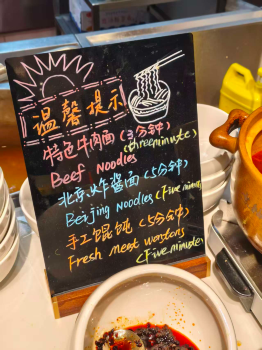 温馨提示
特色牛肉面(3分钟)
(threeminute)
Beef Noodles
北京炸酱面(5分钟)
Beijing Noodles (Five minute)
手工馄饨(5分钟)
Fresh meat wontons
(Five minute)